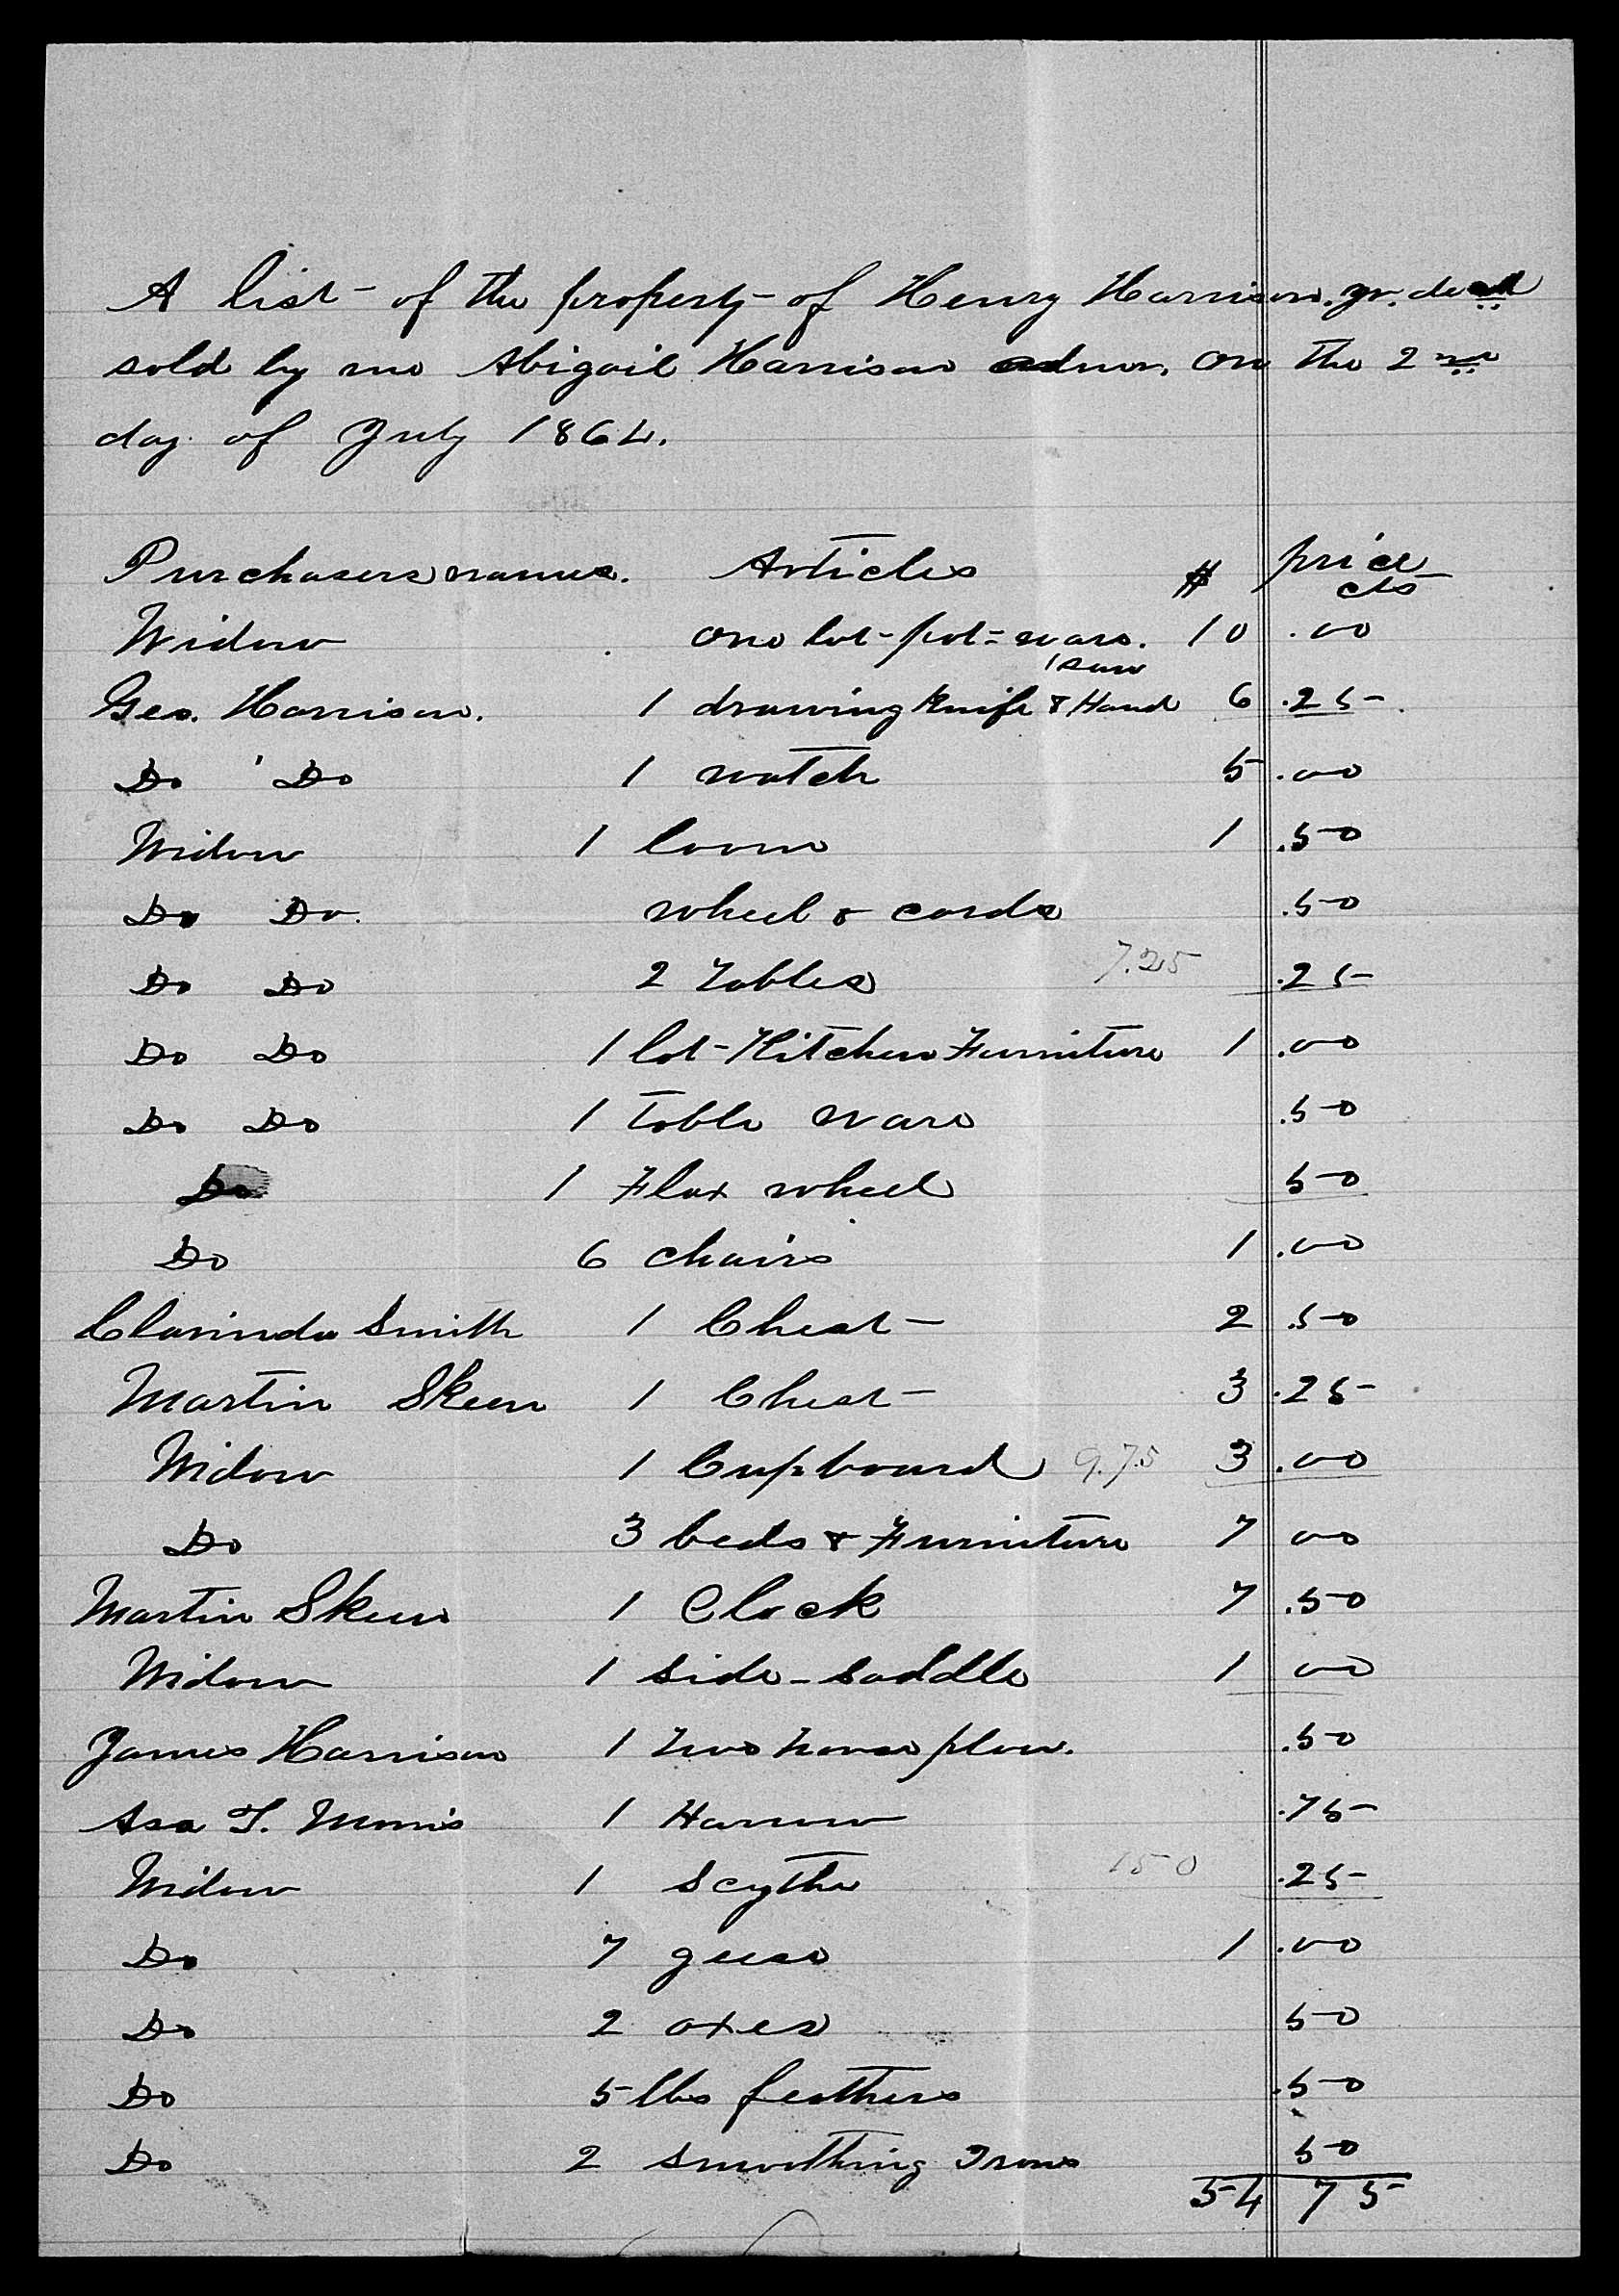 A list of the property of Henry Harrison. Jr. decd
sold by me Abigail Harrison admr. on the 2nd
day of July 1864.
Purchasers names. Articles $ price cts
Widow one lot-pot=ware. 10 .00
1 saw
Geo. Harrison. 1 drawing Knife & Hand 6 .25
Do Do 1 watch 5 .00
Widow 1 loom 1 .50
Do Do. wheel & cards .50
Do Do 2 Tables 7.25 .25
Do Do 1 lot-Kitchen Furniture 1 .00
Do Do 1 Table ware .50
Do 1 Flax wheel 50
Do 6 chairs 1 .00
Clarinda Smith 1 Chest 2 .50
Martin Skeen 1 Chest 3 .25
Widow 1 Cupboard 9.75 3 .00
Do 3 beds & Furniture 7 00
Martin Skeen 1 Clock 7 .50
Widow 1 Side-Saddle 1 00
James Harrison 1 two horse plow. .50
Asa T. Morris 1 Harrow .75
Widow 1 Scythe 150 .25
Do 7 geese 1 .00
Do 2 axes 50
Do 5 lbs feathers .50
Do 2 Smoothing Irons 50
54 75